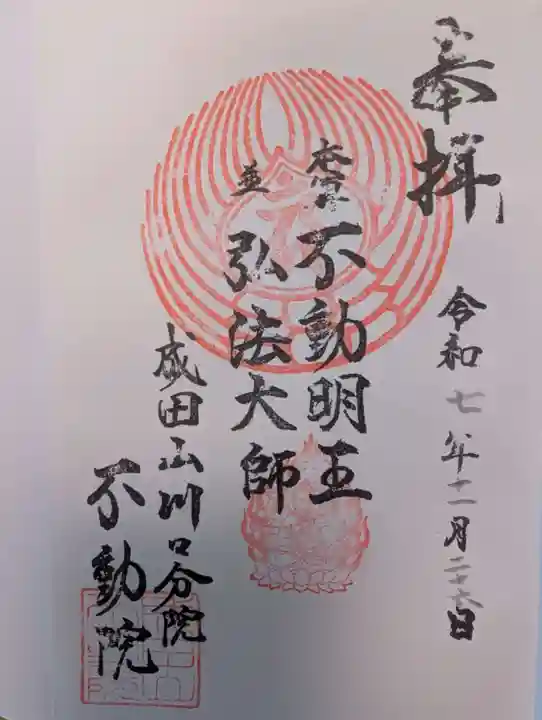 奉拝
令和七年十二月二十六日
本尊 不動明王
並 弘法大師
成田山川口分院
不動院